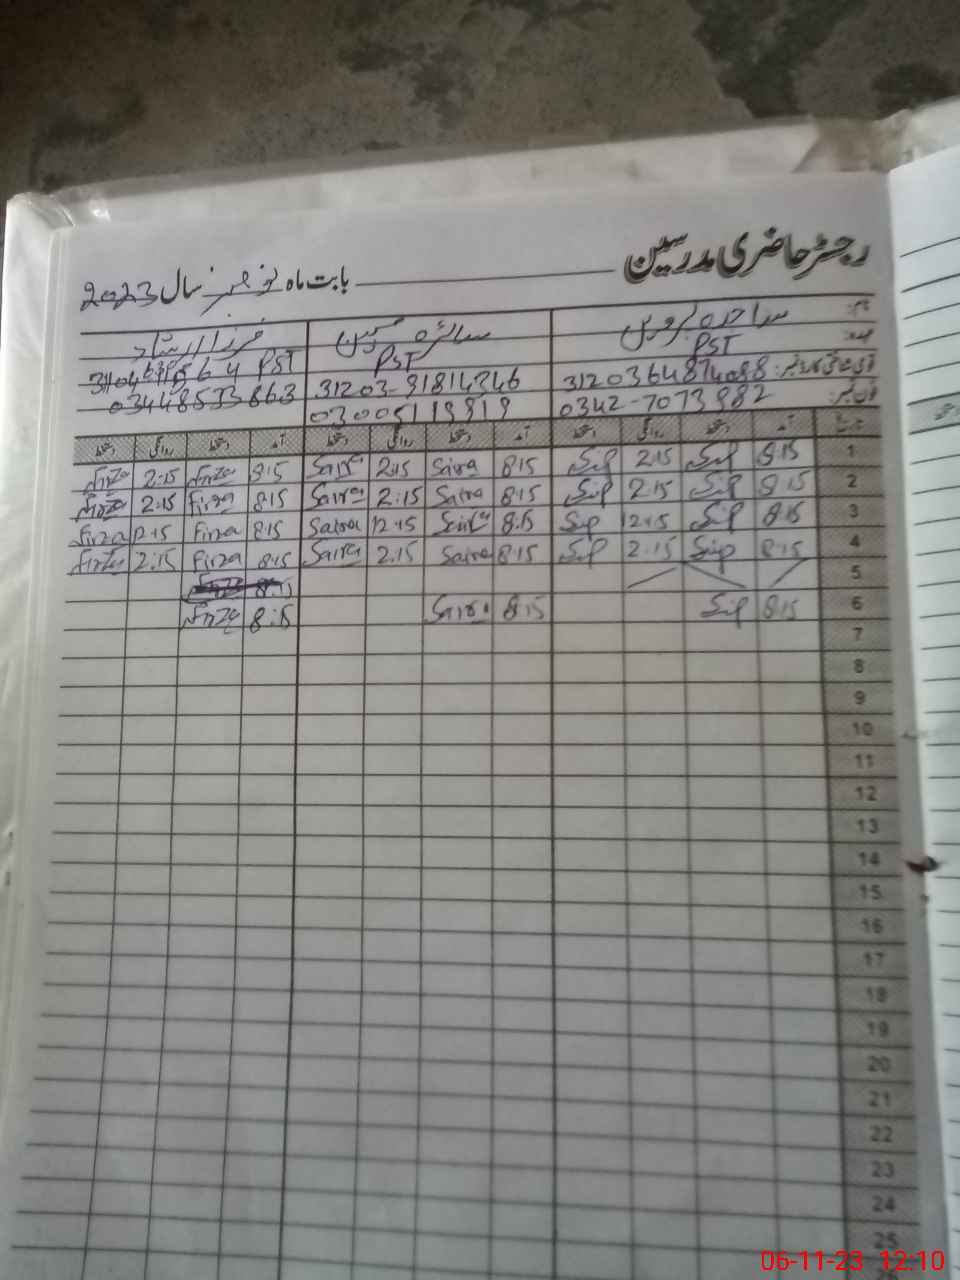 رجسٹر حاضری مدرسین بابت ماہ نومبر سال 2023
نام: ساجدہ پروین سائرہ فرزا ارشاد
عہدہ: PST PST PST
قومی شناختی کارڈ نمبر: 3120364874088 31203-91814346
فون نمبر: 0342-7073982 03005119919 03448533863
تاریخ آمد دستخط روانگی دستخط آمد دستخط روانگی دستخط آمد دستخط روانگی دستخط
1 8:15 2:15 8:15 Saira 2:15 Saira 8:15 Firza 2:15 Firza
2 8:15 2:15 8:15 Saira 2:15 Saira 8:15 Firza 2:15 Firza
3 8:15 12:15 8:15 Saira 12:15 Saira 8:15 Firza 12:15 Firza
4 8:15 2:15 8:15 Saira 2:15 Saira 8:15 Firza 2:15 Firza
5 8:15
6 8:15 8:15 Saira 8:15 Firza
7
8
9
10
11
12
13
14
15
16
17
18
19
20
21
22
23
24
25
06-11-23 12:10